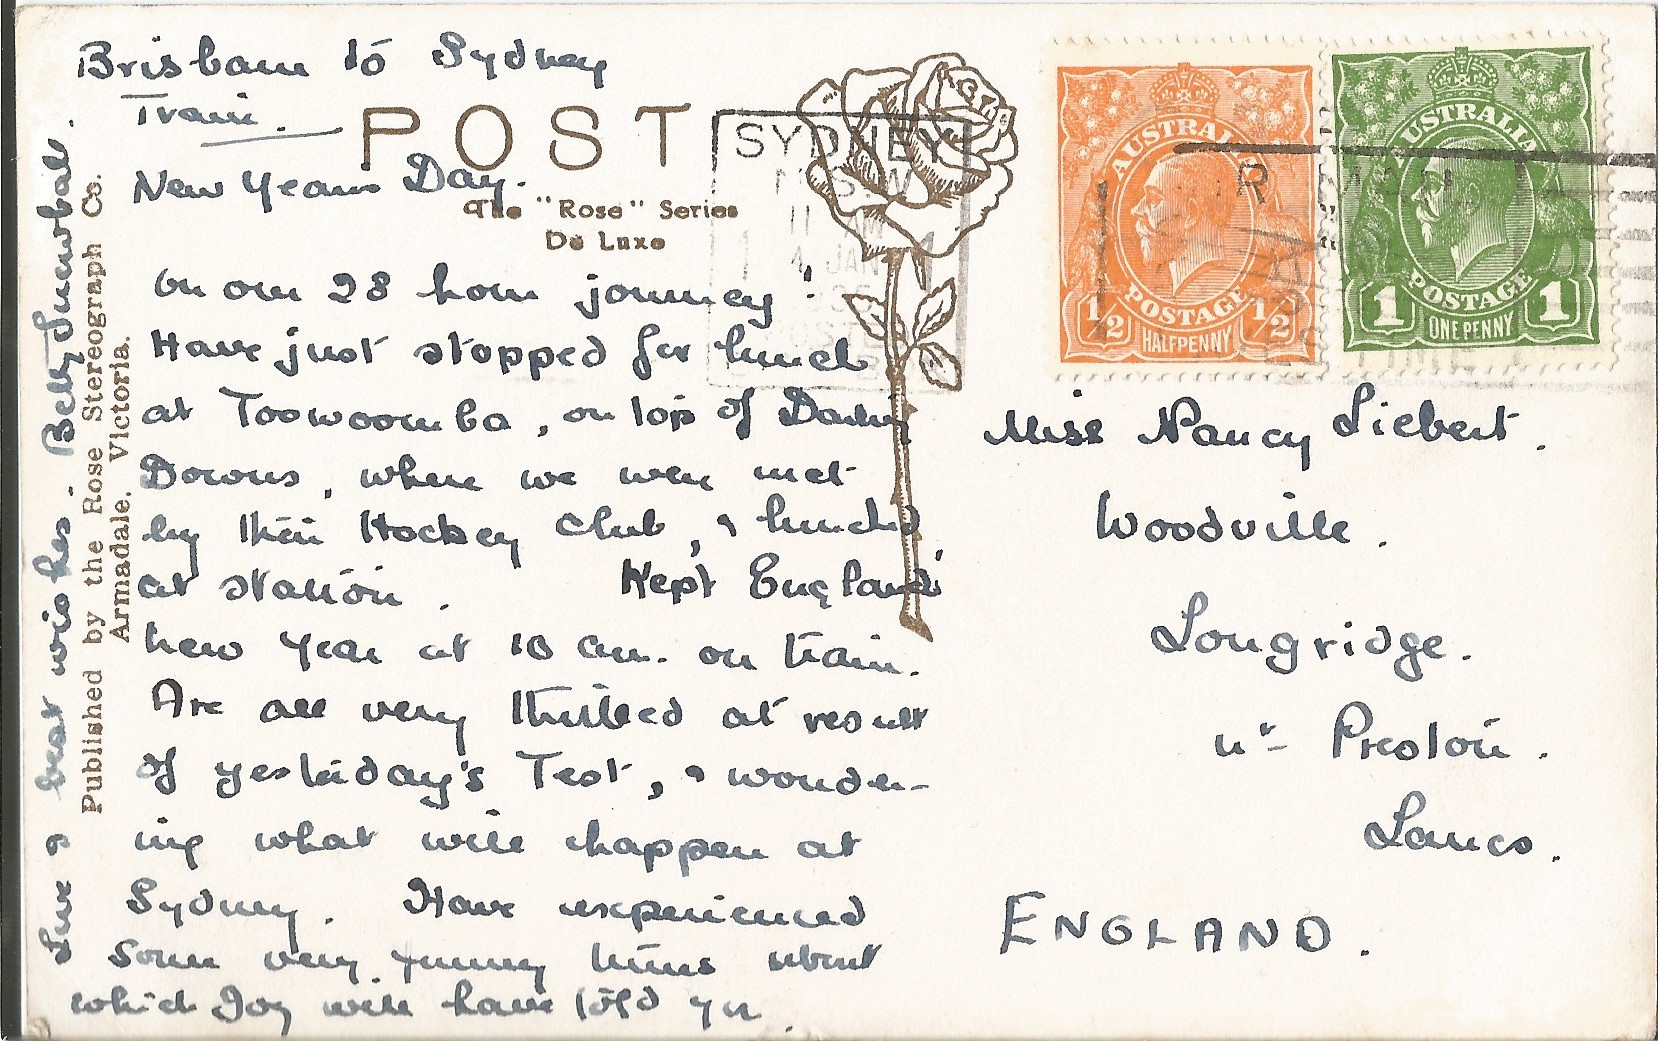 Brisbane to Sydney
Train.
New Years Day.
POST
The "Rose" Series
De Luxe
On our 28 hour journey!
Have just stopped for lunch
at Toowoomba, on top of Darling
Downs, where we were met
by their Hockey Club, & lunched
at station. Kept England's
new year at 10 am. on train.
Are all very thrilled at result
of yesterday's Test, & wonder-
ing what will happen at
Sydney. Have experienced
some very funny times about
which Joy will have told you.
Love & best wishes. Betty
Published by the Rose Stereograph Co.
Armadale. Victoria.
SYDNEY
N.S.W
11 AM
4 JAN
AUSTRALIA
POSTAGE
1/2 1/2
HALFPENNY
AUSTRALIA
POSTAGE
1 1
ONE PENNY
Miss Nancy Liebert.
Woodville.
Longridge.
nr Preston.
Lancs.
ENGLAND.